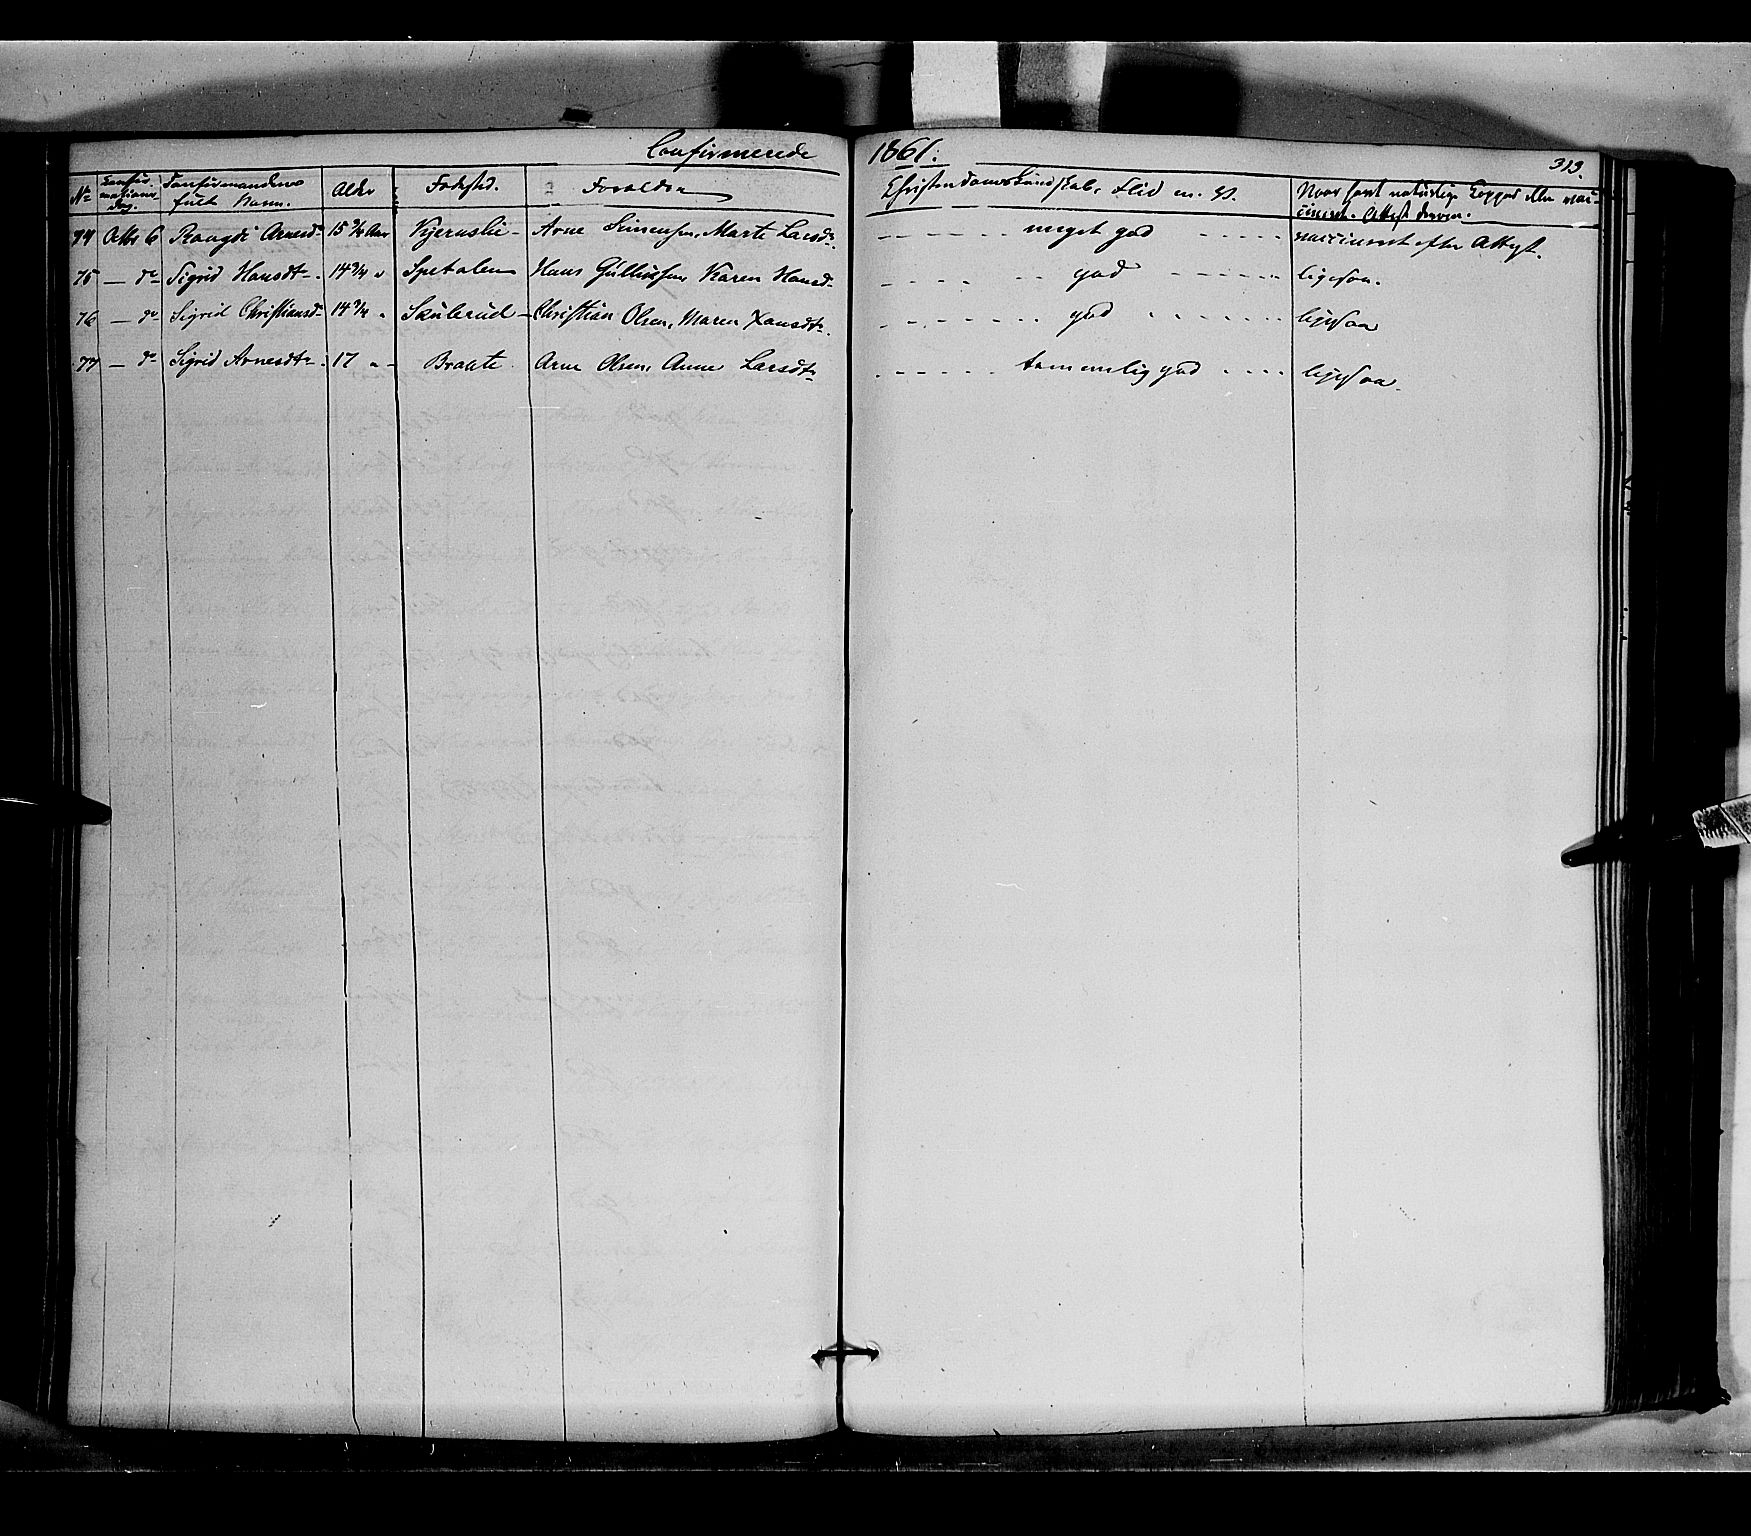 Confirmerede 1861.
313.
No Confirmations Dag. Confirmandens fulde Navn. Alder Fødested. Forældre Christendoms Kundskab, Flid m. v. Naar havt naturlige Kopper eller vaccineret. Attest derom.
74 Octbr 6 Rangdi Arnesd. 15 3/4 Aar Kjernslie - Arne Simensen, Marte Larsd. - - - - - meget god - - - - - vaccineret efter Attest.
75 — do Sigrid Hansdtr. 14 3/4 " Spetalen Hans Gulliksen Karen Hansd. - - - - - god - - - - - ligesaa.
76 — do Sigrid Christiansd. 14 3/4 " Skülerud - Christian Olsen, Maren Hansdtr. - - - - - god - - - - - ligesaa
77 — do Sigrid Arnesdtr. 17 " - Braate Arne Olsen, Anne Larsdtr - - - - - temmelig god - - - - ligesaa.